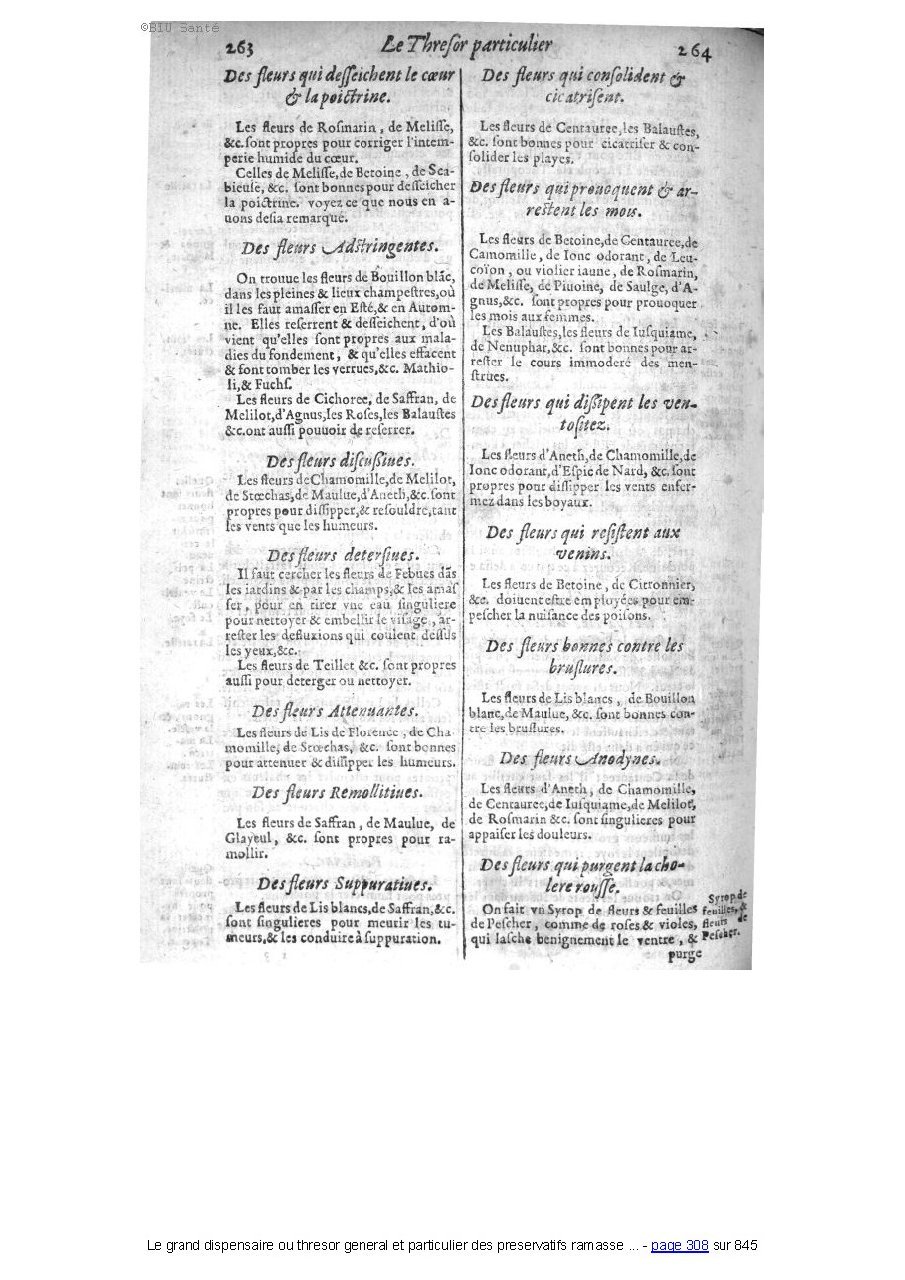 ©BIU Santé
263
Le Thresor particulier
264
Des fleurs qui desseichent le cœur
& la poictrine.
Les fleurs de Rosmarin, de Melisse,
&c. sont propres pour corriger l'intem-
perie humide du cœur.
Celles de Melisse, de Betoine, de Sca-
bieuse, &c. sont bonnes pour desseicher
la poictrine. voyez ce que nous en a-
uons desia remarqué.
Des fleurs Adstringentes.
On trouue les fleurs de Bouillon blāc,
dans les pleines & lieux champestres, où
il les faut amasser en Esté, & en Autom-
ne. Elles reserrent & desseichent, d'où
vient qu'elles sont propres aux mala-
dies du fondement, & qu'elles effacent
& font tomber les verrues, &c. Mathio-
li, & Fuchs.
Les fleurs de Cichoree, de Saffran, de
Melilot, d'Agnus, les Roses, les Balaustes
&c. ont aussi pouuoir de reserrer.
Des fleurs discussiues.
Les fleurs de Chamomille, de Melilot,
de Stœchas, de Maulue, d'Aneth, &c. sont
propres pour dissiper, & resouldre, tant
les vents que les humeurs.
Des fleurs detersiues.
Il faut cercher les fleurs de Febues dās
les iardins & par les champs, & les amas
ser, pour en tirer vne eau singuliere
pour nettoyer & embellir le visage, ar-
rester les defluxions qui coulent dessus
les yeux, &c.
Les fleurs de Teillet &c. sont propres
aussi pour deterger ou nettoyer.
Des fleurs Attenuantes.
Les fleurs de Lis de Florence, de Cha
momille, de Stœchas, &c. sont bonnes
pour attenuer & dissipper les humeurs.
Des fleurs Remollitiues.
Les fleurs de Saffran, de Maulue, de
Glayeul, &c. sont propres pour ra-
mollir.
Des fleurs Suppuratiues.
Les fleurs de Lis blancs, de Saffran, &c.
sont singulieres pour meurir les tu-
meurs, & les conduire à suppuration.
Des fleurs qui consolident &
cicatrisent.
Les fleurs de Centauree, les Balaustes,
&c. sont bonnes pour cicatriser & con-
solider les playes.
Des fleurs qui prouoquent & ar-
restent les mois.
Les fleurs de Betoine, de Centauree, de
Camomille, de Ionc odorant, de Leu-
coïon, ou violier iaune, de Rosmarin,
de Melisse, de Piuoine, de Saulge, d'A-
gnus, &c. sont propres pour prouoquer
les mois aux femmes.
Les Balaustes, les fleurs de Iusquiame,
de Nenuphar, &c. sont bonnes pour ar-
rester le cours immoderé des men-
strues.
Des fleurs qui dissipent les ven-
tositez.
Les fleurs d'Aneth, de Chamomille, de
Ionc odorant, d'Espic de Nard, &c. sont
propres pour dissipper les vents enfer-
mez dans les boyaux.
Des fleurs qui resistent aux
venins.
Les fleurs de Betoine, de Citronnier,
&c. doiuent estre employées pour em-
pescher la nuisance des poisons.
Des fleurs bonnes contre les
bruslures.
Les fleurs de Lis blancs, de Bouillon
blanc, de Maulue, &c. sont bonnes con-
tre les bruslures.
Des fleurs Anodynes.
Les fleurs d'Aneth, de Chamomille,
de Centauree, de Iusquiame, de Melilot,
de Rosmarin &c. sont singulieres pour
appaiser les douleurs.
Des fleurs qui purgent la cho-
lere rousse.
On fait vn Syrop de fleurs & feuilles
de Pescher, comme de roses & violes,
qui lasche benignement le ventre, &
purge
Syrop de
feuilles, &
fleurs de
Pescher.
Le grand dispensaire ou thresor general et particulier des preservatifs ramasse ... - page 308 sur 845